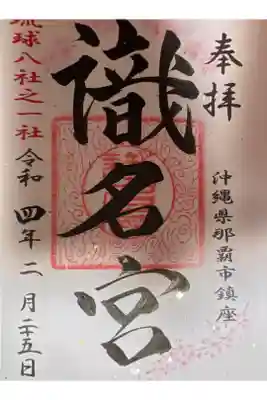 奉拝
沖縄県那覇市鎮座
識名宮
琉球八社之一社
令和四年二月二十五日